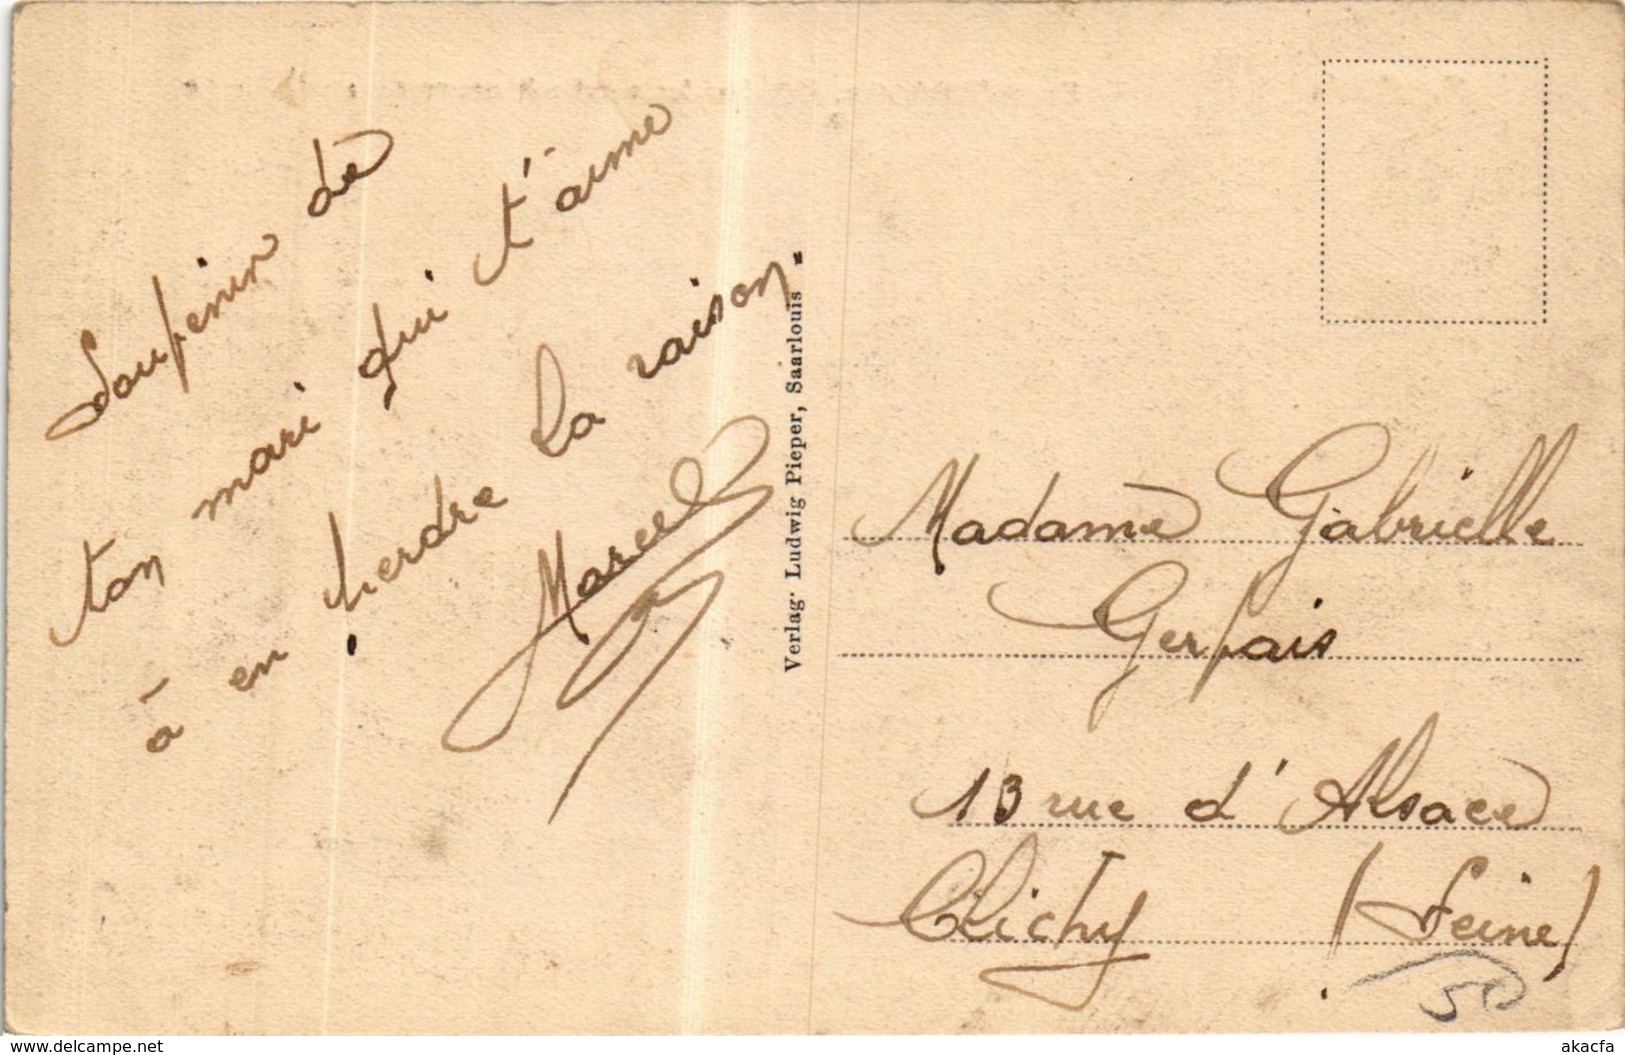 Souvenir de
ton mari qui t'aime
à en perdre la raison.
Marcel
Verlag: Ludwig Pieper, Saarlouis
Madame Gabrielle
Gervais
13 rue d'Alsace
Clichy (Seine)
50
www.delcampe.net
akacfa